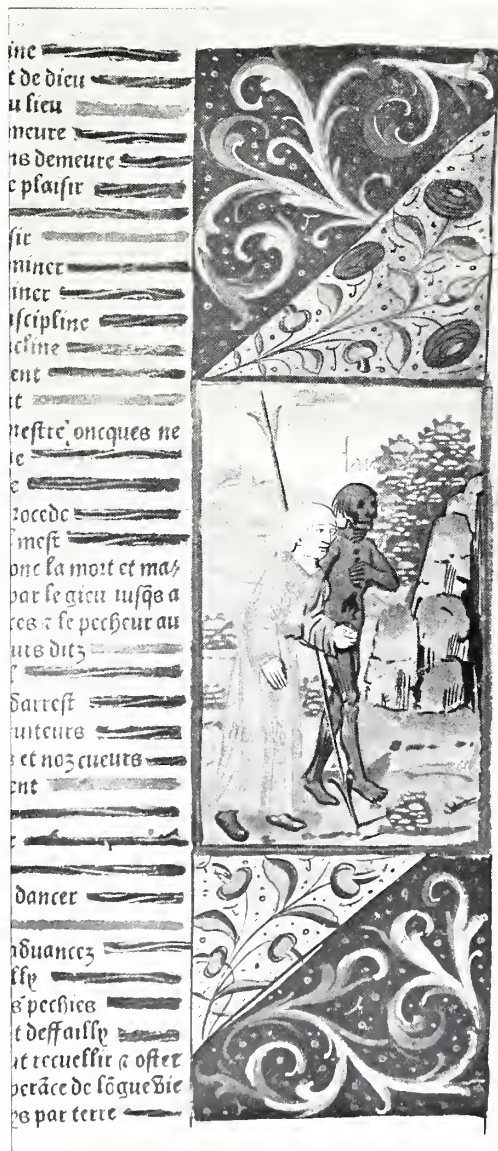 ine
t de dieu
u lieu
meure
ns demeure
c plaisir
sir
miner
iner
iscipline
cline
ent
t
nestre oncques ne
e
e
rocede
mest
onc la mort et ma/
par le gieu iusq̃s a
ces ⁊ le pecheur au
uis ditz
darrest
uiteurs
s et noz cueurs
ent
dancer
aduancez
lly
s pechies
t deffailly
ut recueillir ⁊ oster
perãce de lõgue vie
ys par terre